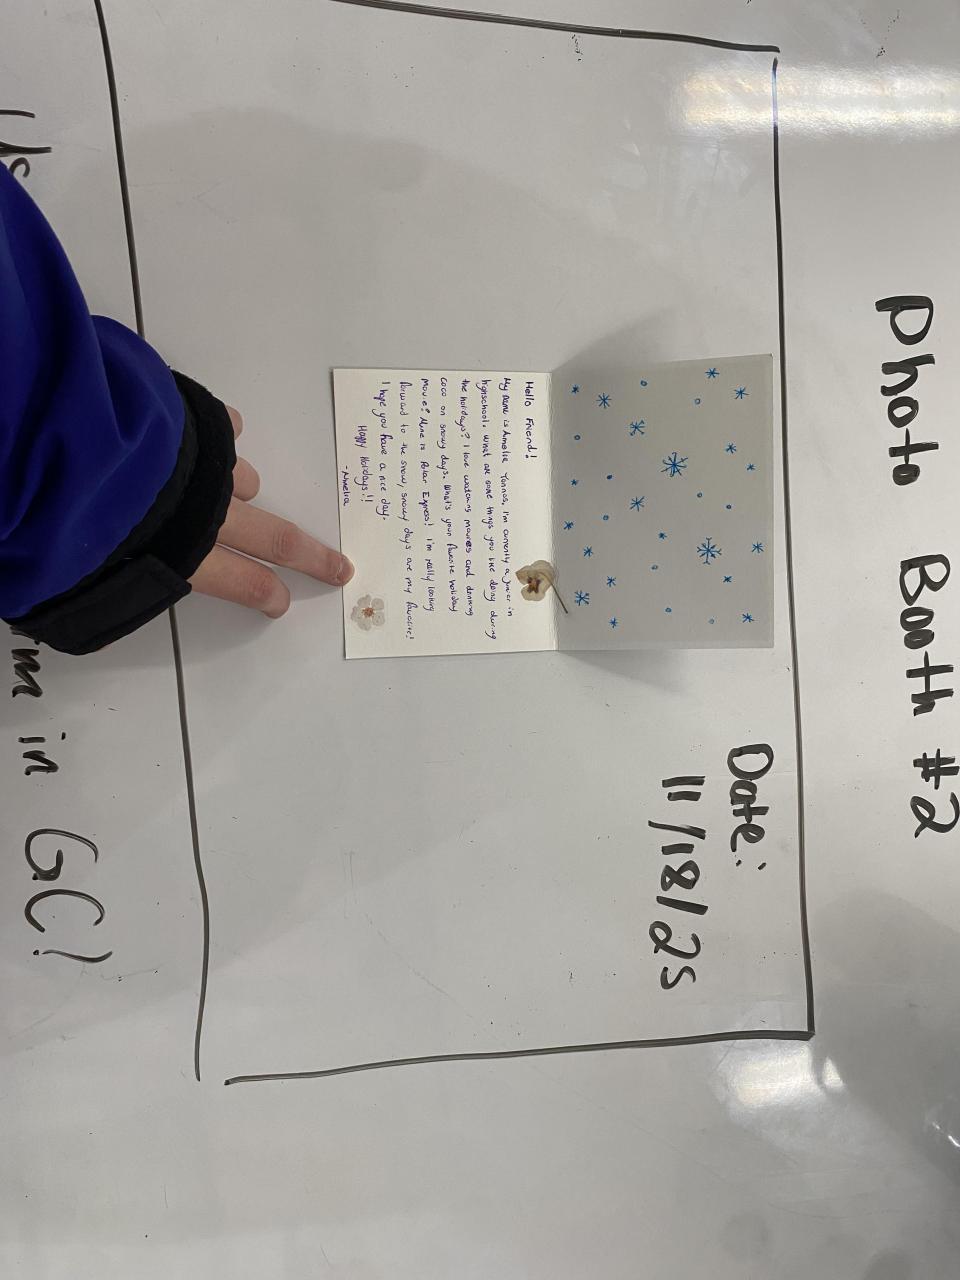 Photo Booth #2
Date:
11/18/25
Hello Friend!
My name is Amelia Yonnas. I'm currently a junior in
highschool. What are some things you like doing during
the holidays? I love watching movies and drinking
coco on snowy days. What's your favorite holiday
movie? Mine is Polar Express! I'm really looking
forward to the snow, snowy days are my favorite!
I hope you have a nice day.
Happy Holidays!!
-Amelia
in GC!